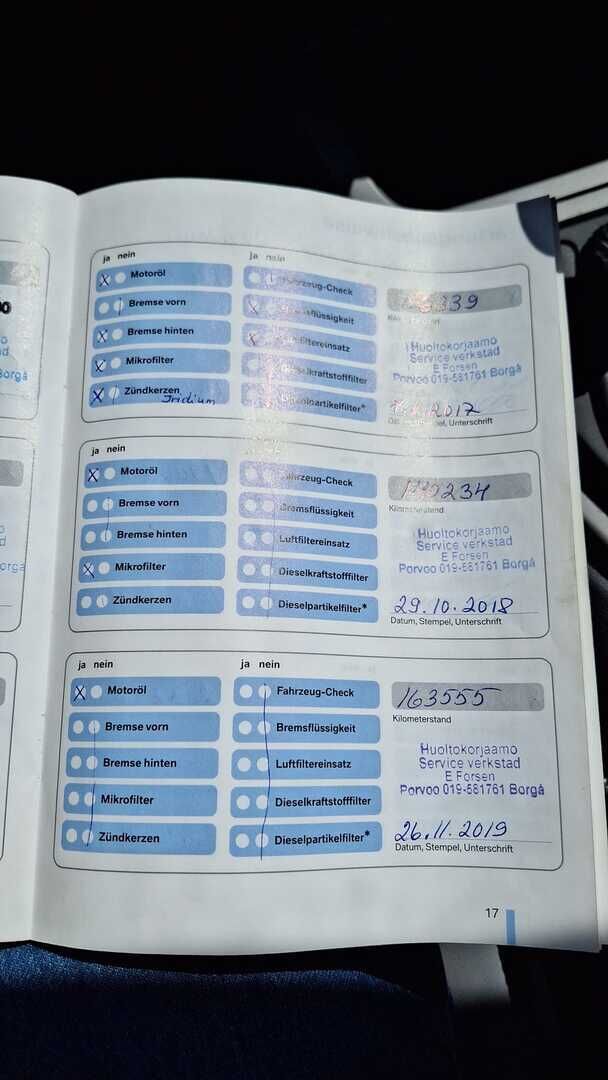 ja nein
ja nein
Motoröl
Bremse vorn
Bremse hinten
Mikrofilter
Zündkerzen
Iridium
Fahrzeug-Check
Bremsflüssigkeit
Luftfiltereinsatz
Dieselkraftstofffilter
Dieselpartikelfilter*
339
Huoltokorjaamo
Service verkstad
E Forsen
Porvoo 019-581761 Borgå
2017
Datum, Stempel, Unterschrift
ja nein
Motoröl
Bremse vorn
Bremse hinten
Mikrofilter
Zündkerzen
Fahrzeug-Check
Bremsflüssigkeit
Luftfiltereinsatz
Dieselkraftstofffilter
Dieselpartikelfilter*
234
Kilometerstand
Huoltokorjaamo
Service verkstad
E Forsen
Porvoo 019-581761 Borgå
29.10.2018
Datum, Stempel, Unterschrift
ja nein
ja nein
Motoröl
Bremse vorn
Bremse hinten
Mikrofilter
Zündkerzen
Fahrzeug-Check
Bremsflüssigkeit
Luftfiltereinsatz
Dieselkraftstofffilter
Dieselpartikelfilter*
163555
Kilometerstand
Huoltokorjaamo
Service verkstad
E Forsen
Porvoo 019-581761 Borgå
26.11.2019
Datum, Stempel, Unterschrift
17